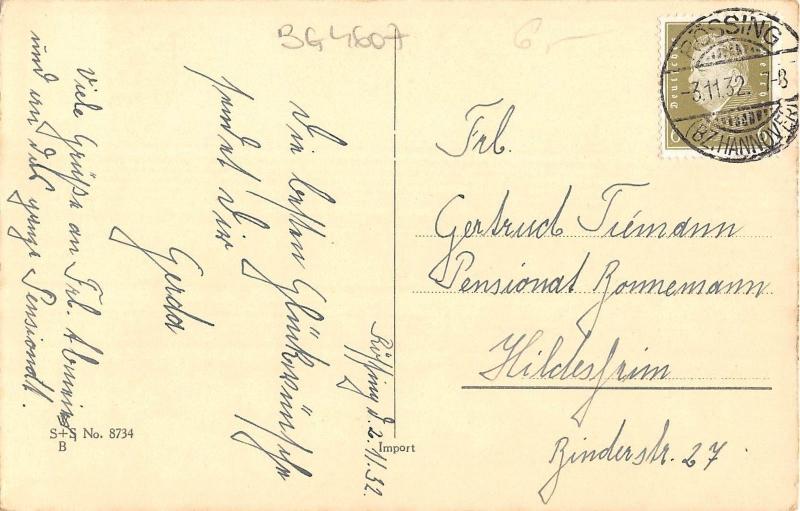 BG 4607
6,–
RÖSSING
3.11.32. 7-8
(BZ. HANNOVER)
Deutsches Reich
6
Rössing d. 2.11.32.
Die besten Glückwünsche
sendet Dir
Gerda
Viele Grüße an Frl.
und an das ganze Pensionat.
Frl.
Gertrud Tiemann
Pensionat Bonnemann
Hildesheim
Binderstr. 27
S+S No. 8734
B
Import